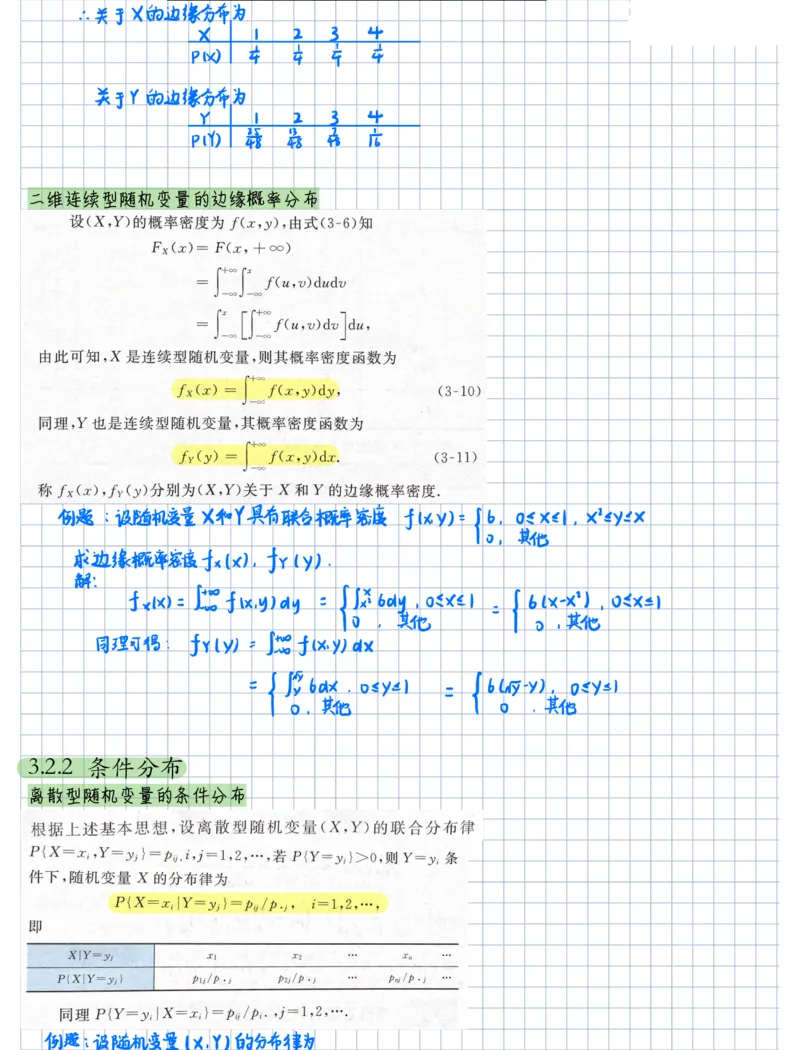 ∴关于X的边缘分布为
X 1 2 3 4
P(X) 1/4 1/4 1/4 1/4
关于Y的边缘分布为
Y 1 2 3 4
P(Y) 25/48 13/48 7/48 1/16
二维连续型随机变量的边缘概率分布
设(X,Y)的概率密度为 f(x,y),由式(3-6)知
F_X(x)= F(x,+∞)
= ∫_{-∞}^{+∞}∫_{-∞}^{x} f(u,v)dudv
= ∫_{-∞}^{x} [∫_{-∞}^{+∞} f(u,v)dv]du,
由此可知,X 是连续型随机变量,则其概率密度函数为
f_X(x) = ∫_{-∞}^{+∞} f(x,y)dy, (3-10)
同理,Y 也是连续型随机变量,其概率密度函数为
f_Y(y) = ∫_{-∞}^{+∞} f(x,y)dx. (3-11)
称 f_X(x),f_Y(y)分别为(X,Y)关于 X 和 Y 的边缘概率密度.
例题：设随机变量X和Y具有联合概率密度 f(x,y)= { 6, 0≤x≤1, x²≤y≤x
0, 其他
求边缘概率密度f_X(x), f_Y(y).
解:
f_X(x) = ∫_{-∞}^{+∞} f(x,y)dy = { ∫_{x²}^{x} 6dy, 0≤x≤1 = { 6(x-x²), 0≤x≤1
0, 其他 0, 其他
同理可得: f_Y(y) = ∫_{-∞}^{+∞} f(x,y)dx
= { ∫_{y}^{√y} 6dx, 0≤y≤1 = { 6(√y-y), 0≤y≤1
0, 其他 0, 其他
3.2.2 条件分布
离散型随机变量的条件分布
根据上述基本思想,设离散型随机变量(X,Y)的联合分布律
P{X=x_i,Y=y_j}=p_{ij},i,j=1,2,…,若 P{Y=y_i}>0,则 Y=y_i 条
件下,随机变量 X 的分布律为
P{X=x_i|Y=y_j}=p_{ij}/p_{·j}, i=1,2,…,
即
X|Y=y_j x_1 x_2 … x_n …
P{X|Y=y_j} p_{1j}/p_{·j} p_{2j}/p_{·j} … p_{nj}/p_{·j} …
同理 P{Y=y_i|X=x_i}=p_{ij}/p_{i·},j=1,2,….
例题：设随机变量(X,Y)的分布律为